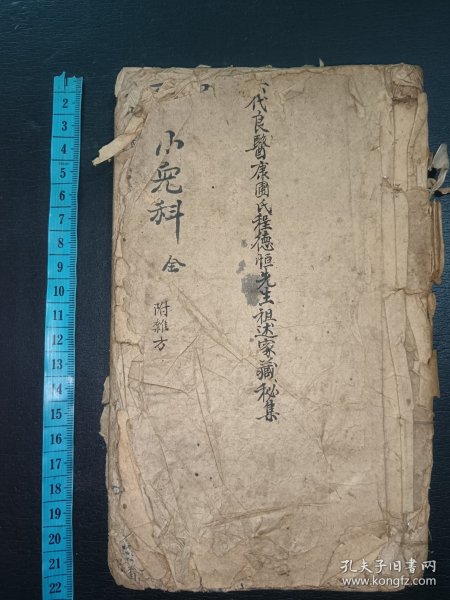 代良醫康圃氏程德恒先生祖述家藏秘集
小兒科 全
附雜方
2
3
4
5
6
7
8
9
10
11
12
13
14
15
16
17
18
19
20
21
22
孔夫子旧书网
www.kongfz.com